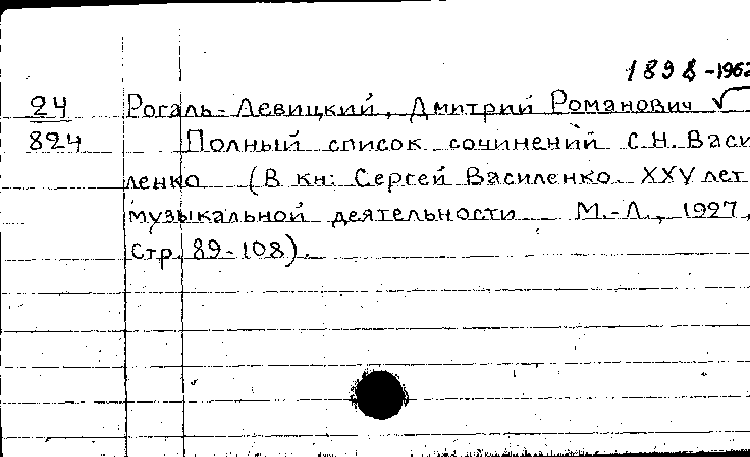 1898-1962
24 Рогаль-Левицкий, Дмитрий Романович √
824 Полный список сочинений С.Н. Васи
ленко (В кн: Сергей Василенко. XXV лет
музыкальной деятельности М.-Л., 1927,
Стр. 89-108).